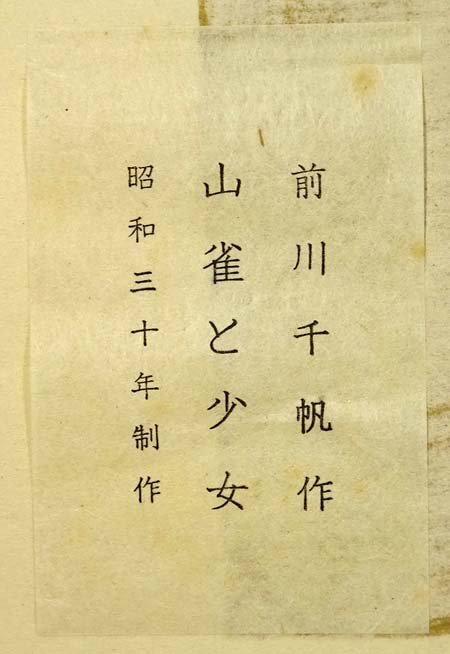 前川千帆作
山雀と少女
昭和三十年制作